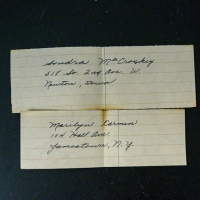 Sondra McCroskey
518 So. 2nd Ave. W.
Newton, Iowa
Marilyn Larmon
104 Hall Ave.
Jamestown, N.Y.